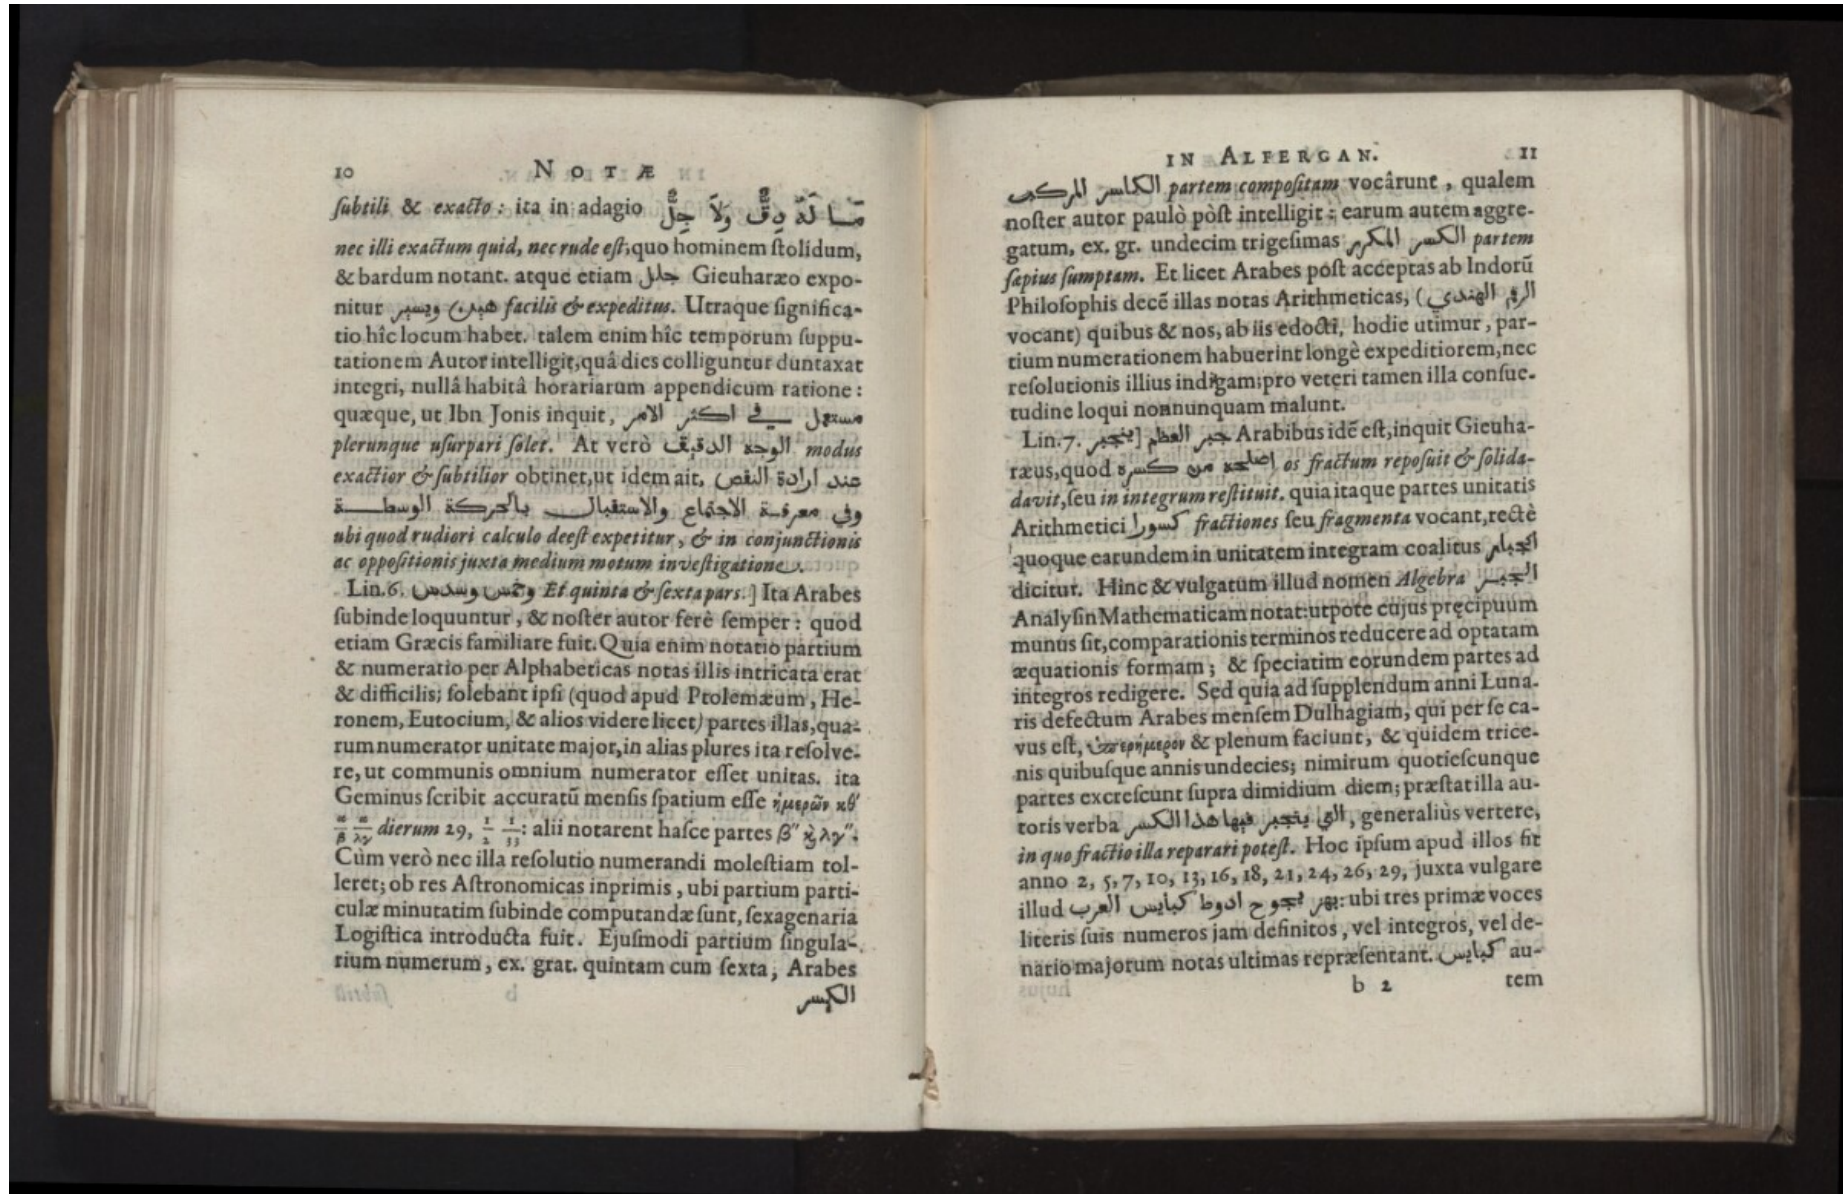 10 NOTÆ
ſubtili & exacto: ita in adagio مَا لَهُ دِقٌّ وَلَا جِلٌّ
nec illi exactum quid, nec rude eſt, quo hominem ſtolidum,
& bardum notant. atque etiam جليل Gieuharæo expo-
nitur هين ويسير facilis & expeditus. Utraque ſignifica-
tio hîc locum habet. talem enim hîc temporum ſuppu-
tationem Autor intelligit, quâ dies colliguntur duntaxat
integri, nullâ habitâ horariarum appendicum ratione:
quæque, ut Ibn Jonis inquit, مستعمل في اكثر الامر
plerunque uſurpari ſolet. At verò الوجه الدقيق modus
exactior & ſubtilior obtinet, ut idem ait, عند ارادة النقص
وفي معرفة الاجتماع والاستقبال بالحركة الوسطة
ubi quod rudiori calculo deeſt expetitur, & in conjunctionis
ac oppoſitionis juxta medium motum inveſtigatione.
Lin. 6. وخمس وسدس Et quinta & ſexta pars.] Ita Arabes
ſubinde loquuntur, & noſter autor ferè ſemper: quod
etiam Græcis familiare fuit. Quia enim notatio partium
& numeratio per Alphabeticas notas illis intricata erat
& difficilis; ſolebant ipſi (quod apud Ptolemæum, He-
ronem, Eutocium, & alios videre licet) partes illas, qua-
rum numerator unitate major, in alias plures ita reſolve-
re, ut communis omnium numerator eſſet unitas. ita
Geminus ſcribit accuratũ menſis ſpatium eſſe ἡμερῶν κθʹ
α/β α/λγ dierum 29, 1/2 1/33: alii notarent haſce partes β″ ϗ λγ″.
Cùm verò nec illa reſolutio numerandi moleſtiam tol-
leret; ob res Aſtronomicas inprimis, ubi partium parti-
culæ minutatim ſubinde computandæ ſunt, ſexagenaria
Logiſtica introducta fuit. Ejuſmodi partium ſingula-
rium numerum, ex. grat. quintam cum ſexta, Arabes
الكسر
IN ALFERGAN. 11
الكاسر المركب partem compoſitam vocârunt, qualem
noſter autor paulò pòſt intelligit: earum autem aggre-
gatum, ex. gr. undecim trigeſimas الكسر المكرر partem
ſæpius ſumptam. Et licet Arabes poſt acceptas ab Indorũ
Philoſophis decẽ illas notas Arithmeticas, (الرقم الهندي
vocant) quibus & nos, ab iis edocti, hodie utimur, par-
tium numerationem habuerint longè expeditiorem, nec
reſolutionis illius indigam; pro veteri tamen illa conſue-
tudine loqui nonnunquam malunt.
Lin. 7. ينجبر] جبر العظم Arabibus idẽ eſt, inquit Gieuha-
ræus, quod اصلحه من كسره os fractum repoſuit & ſolida-
davit, ſeu in integrum reſtituit. quia itaque partes unitatis
Arithmetici كسورا fractiones ſeu fragmenta vocant, rectè
quoque earundem in unitatem integram coalitus انجبار
dicitur. Hinc & vulgatum illud nomen Algebra الجبر
Analyſin Mathematicam notat: utpote cujus pręcipuum
munus ſit, comparationis terminos reducere ad optatam
æquationis formam; & ſpeciatim eorundem partes ad
integros redigere. Sed quia ad ſupplendum anni Luna-
ris defectum Arabes menſem Dulhagiam, qui per ſe ca-
vus eſt, ὑπερήμερον & plenum faciunt, & quidem trice-
nis quibuſque annis undecies; nimirum quotieſcunque
partes excreſcunt ſupra dimidium diem; præſtat illa au-
toris verba التي ينجبر فيها هذا الكسر, generaliùs vertere,
in quo fractio illa reparari poteſt. Hoc ipſum apud illos fit
anno 2, 5, 7, 10, 13, 16, 18, 21, 24, 26, 29, juxta vulgare
illud بهز يجوح ادوط كبايس العرب: ubi tres primæ voces
literis ſuis numeros jam definitos, vel integros, vel de-
nario majorum notas ultimas repræſentant. كبايس au-
b 2 tem